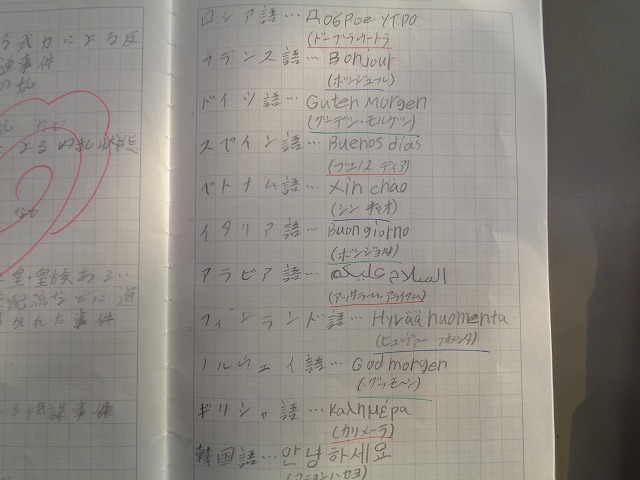 る武力による反
事件
の乱
なむ
よる内乱状態
なむ
皇・皇族ある…
配流などに適
された事件
3 陰謀事件
ロシア語… Доброе утро
(ドーブラウートラ
フランス語… Bonjour
(ボンジュール)
ドイツ語… Guten Morgen
(グーデン・モルゲン)
スペイン語… Buenos dias
(ブエノス ディア)
ベトナム語… Xin chào
(シン チャオ)
イタリア語… Buon giorno
(ボンジョルノ)
アラビア語… السلام عليكم
(アッサラーム・アライクム)
フィンランド語… Hyvää huomenta
(ヒュヴァー フオメンタ)
ノルウェイ語… God morgen
(グッモーン)
ギリシャ語… Καλημέρα
(カリメーラ)
韓国語… 안녕하세요